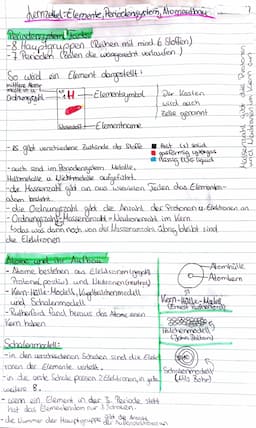 Lernzettel - Elemente, Periodensystem, Atomaufbau
Periodensystem
- 8 Hauptgruppen (Reihen mit mind. 6 Stoffen)
- 7 Perioden (Reihen die waagerecht verlaufen)
So wird ein Element dargestellt:
Ordnungszahl
H
Elementsymbol
Elementname
Der Kasten
wird auch
Zelle genannt
- es gibt verschiedene Zustände der Stoffe
fest
solid
gasförmig
flüssig
liquid
- auch sind im Periodensystem Metalle,
Halbmetalle u. Nichtmetalle aufgeführt.
- die Massenzahl gibt an aus wievielen Teilen das Element
besteht
- die Ordnungszahl gibt die Anzahl der Protonen u. Elektronen an
- Ordnungszahl - Massenzahl = Neutronenzahl im Kern
das was dann noch von der Massenzahl übrig bleibt sind
die Elektronen
Massenzahl gibt die Protonen
und Neutronen im Kern an
Atome und ihr Aufbau
- Atome bestehen aus Elektronen (negativ)
Protonen (positiv) und Neutronen (neutral)
- Kern-Hülle-Modell, Kugelteilchenmodell
und Schalenmodell
- Rutherford fand heraus das Atome einen
Kern haben
Atomhülle
Atomkern
Kern-Hülle-Modell
(Ernest Rutherford)
Teilchenmodell
(John Dalton)
Schalenmodell
(Nils Bohr)
Schalenmodell:
- in den verschiedenen Schalen sind die Elekt-
ronen der Elemente verteilt.
- in die erste Schale passen 2 Elektronen, in jede
weitere 8.
- wenn ein Element in der 3. Periode steht
hat das Elementardon nur 3 Schalen.
- die Nummer der Hauptgruppe gibt die Anzahl
der Außenelektronen an